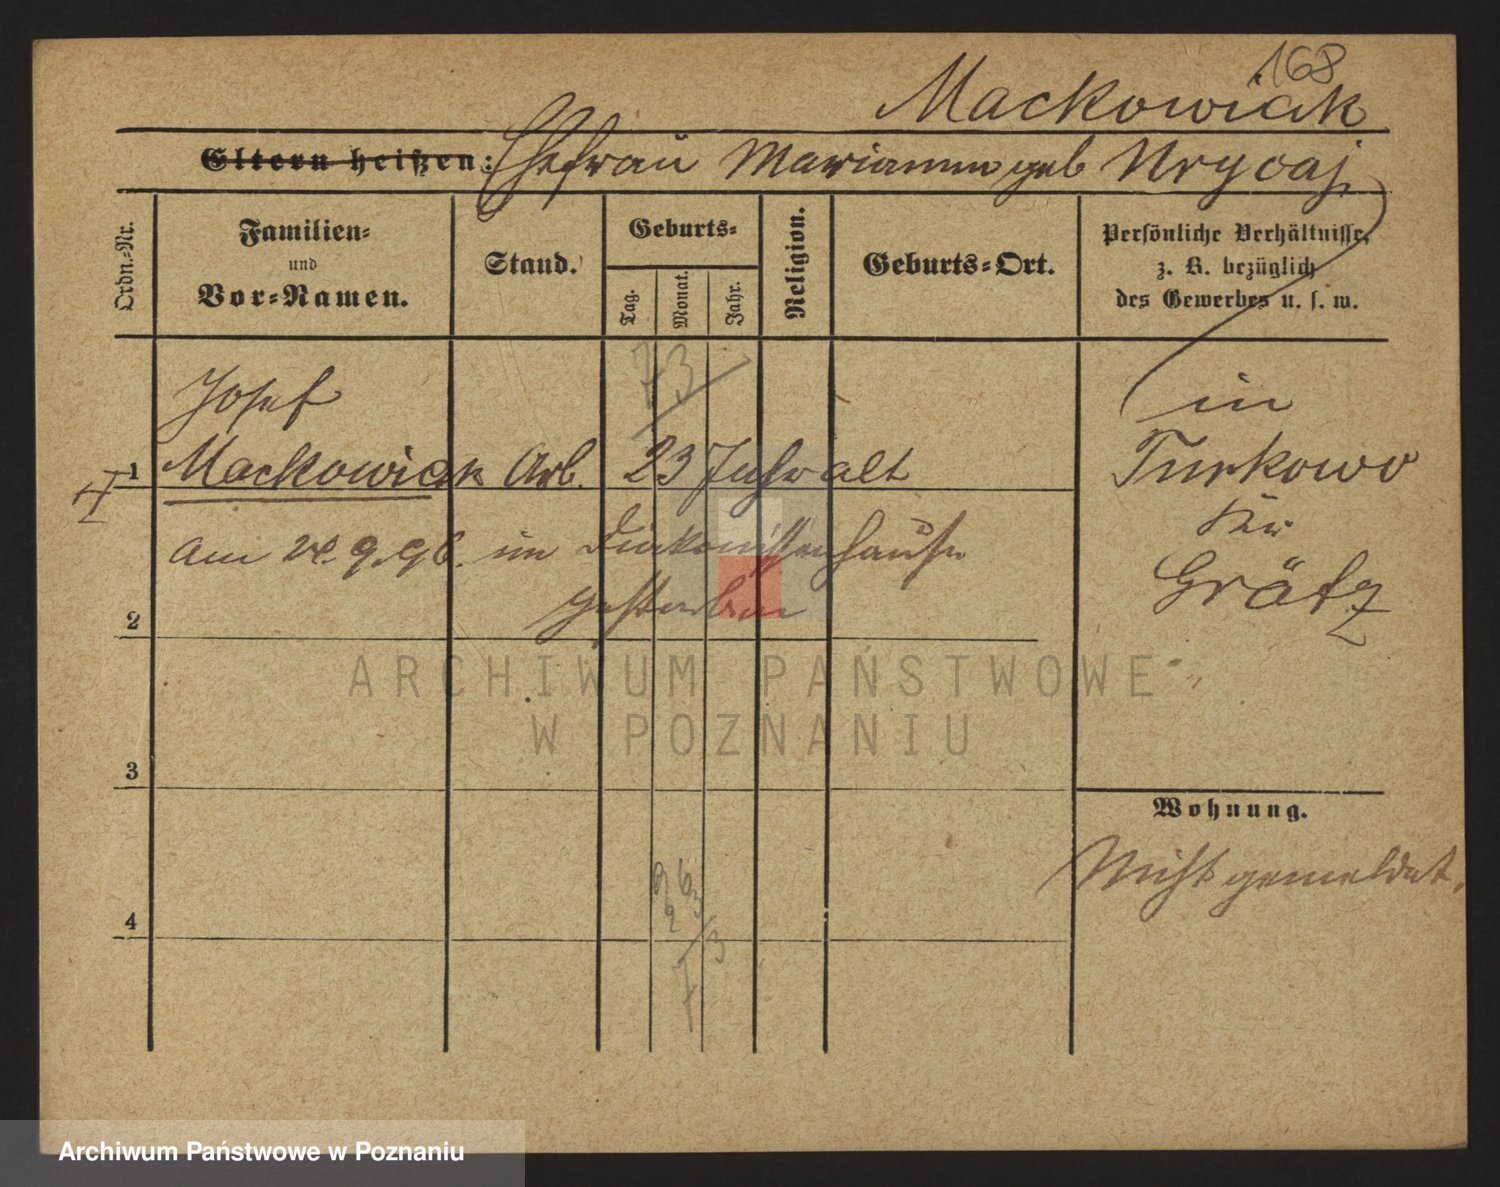 168
Mackowiak
Eltern heißen: Ehefrau Marianna geb Nrycaj
Ordn.-Nr.
Familien-
und
Vor-Namen.
Stand.
Geburts-
Tag.
Monat.
Jahr.
Religion.
Geburts-Ort.
Persönliche Verhältnisse,
z. B. bezüglich
des Gewerbes u. s. w.
73
Josef
1 Mackowiak Arb. 23 Jahr alt
in
Turkowo
Kr
Grätz
am 9.96. im Diakonissenhause
gestorben
2
3
4
Wohnung.
Nicht gemeldet.
96
23
73
ARCHIWUM PAŃSTWOWE
W POZNANIU
Archiwum Państwowe w Poznaniu